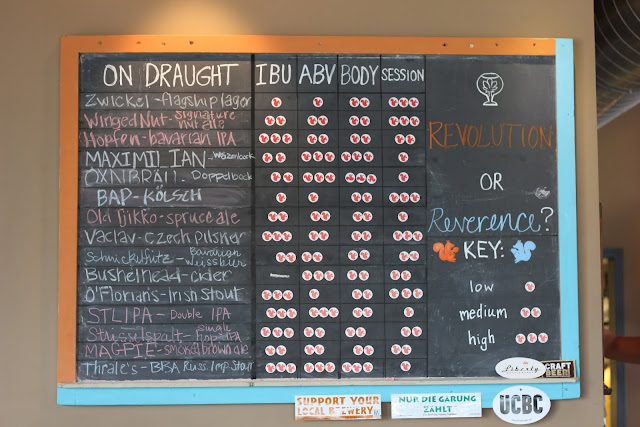 ON DRAUGHT IBU ABV BODY SESSION
Zwickel - flagship lager
Winged Nut - signature nut ale
Hopfen - bavarian IPA
MAXIMILIAN - Weizenbock
OXNBRÄU - Doppelbock
BAP - KÖLSCH
Old Tjikko - spruce ale
Vaclav - czech pilsner
Schnickelfritz - Bavarian Weissbier
Bushelhead - cider
O'Florian's - Irish Stout
STLIPA - Double IPA
Stusselspalt - single hop IPA
MAGPIE - smoked brown ale
Thrale's - BBA Russ. Imp. Stout
REVOLUTION
OR
Reverence?
KEY:
low
medium
high
Liberty
CRAFT
BEER
SUPPORT YOUR
LOCAL BREWERY
NUR DIE GÄRUNG
ZÄHLT
ÜCBC